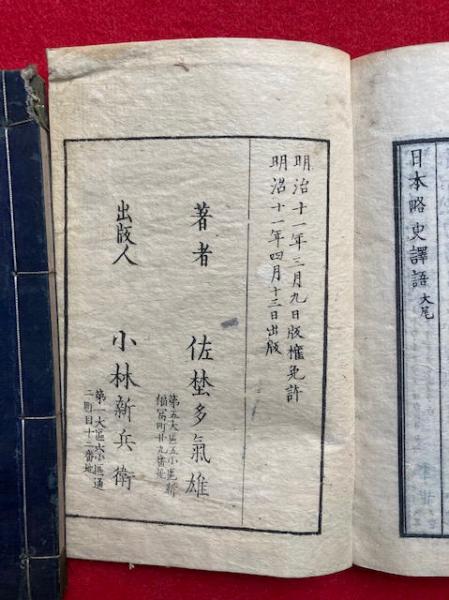 日本略史譯語 大尾
明治十一年三月九日版權免許
明治十一年四月十三日出版
著者 佐埜多氣雄
第五大區五小區新
福冨町廿九番地
出版人 小林新兵衛
第一大區六小區通
二町目十二番地